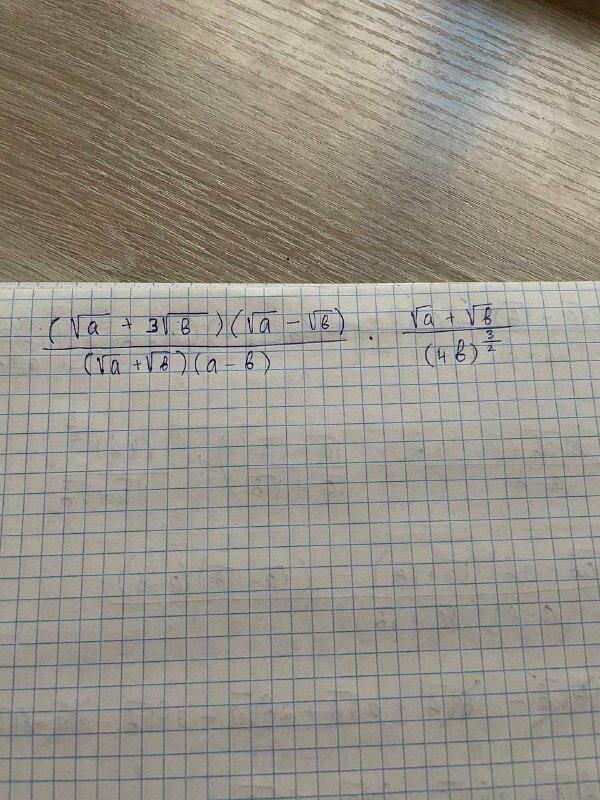 (√a + 3√b)(√a − √b) / (√a + √b)(a − b) · √a + √b / (4b)^(3/2)